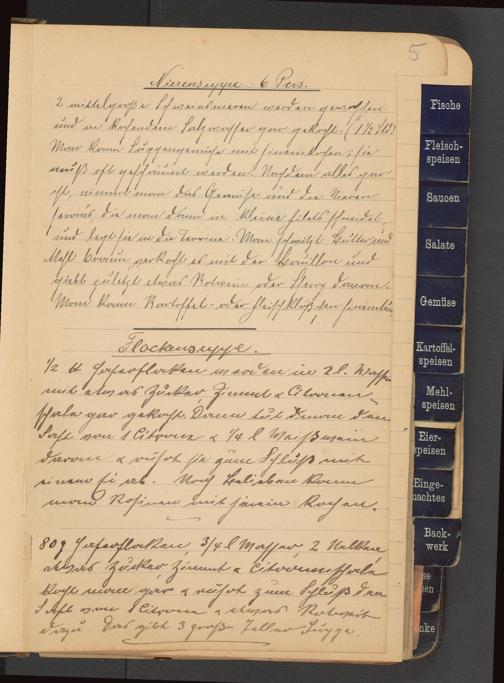 5
Nierensuppe 6 Pers.
2 mittelgroße Schweinenieren werden gewaschen
und in kochendem Salzwasser gar gekocht. (1 1/2 Std)
Man kann Suppengemüse mit hineinkochen, sie
muß oft geschäumt werden. Nachdem alles gar
ist, nimmt man das Gemüse und die Nieren
heraus, die man dann in kleine Filets schneidet,
und legt sie in die Terrine. Man schwitzt Butter und
Mehl braun, verkocht es mit der Bouillon und
giebt zuletzt etwas Rotwein oder Sherry daran.
Man kann Kartoffel- oder Fleischklößchen
Flockensuppe.
1/2 ℔ Haferflocken werden in 2 l. Wasser
mit etwas Zucker, Zimmt & Citronen-
schale gar gekocht. Dann tut man den
Saft von 1 Citrone & 1/4 l Weißwein
daran & rührt sie zum Schluß mit
einem Ei ab. Nach Belieben kann
man Rosinen mit hinein kochen.
80 g Haferflocken, 3/4 l Wasser, 2 Nelken,
etwas Zucker, Zimmt & Citronenschale
kocht man gar & rührt zum Schluß den
Saft von 1 Citrone & etwas Rotwein
dazu. Das gibt 3 große Teller Suppe.
Fische
Fleisch-
speisen
Saucen
Salate
Gemüse
Kartoffel-
speisen
Mehl-
speisen
Eier-
speisen
Einge-
machtes
Back-
werk
se
en
nke